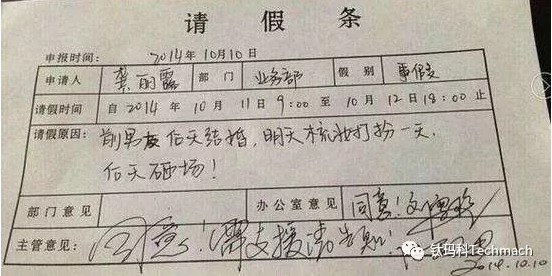 请假条
申报时间: 2014年10月10日
申请人 龚丽露 部门 业务部 假别 事假
请假时间 自2014年10月11日9:00至10月12日18:00止
请假原因: 前男友后天结婚,明天梳妆打扮一天.
后天砸场!
部门意见 办公室意见 同意!
主管意见 同意!需支援请告知!
2014.10.10
钛玛科Techmach